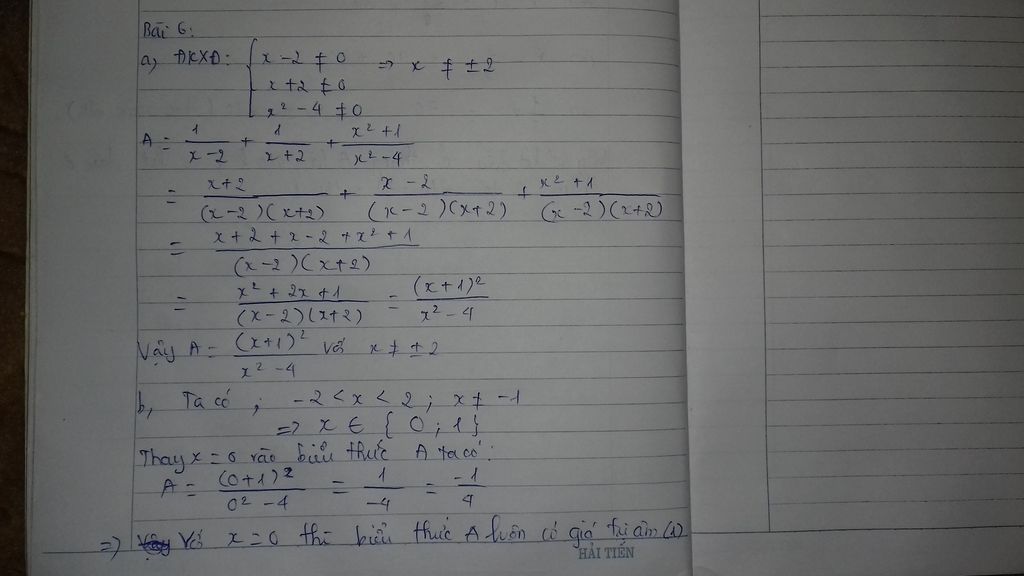 Bài 6:
a, ĐKXĐ: { x - 2 ≠ 0 => x ≠ ±2
x + 2 ≠ 0
x² - 4 ≠ 0
A = 1/(x-2) + 1/(x+2) + (x²+1)/(x²-4)
= (x+2)/((x-2)(x+2)) + (x-2)/((x-2)(x+2)) + (x²+1)/((x-2)(x+2))
= (x+2+x-2+x²+1)/((x-2)(x+2))
= (x²+2x+1)/((x-2)(x+2)) = (x+1)²/(x²-4)
Vậy A = (x+1)²/(x²-4) với x ≠ ±2
b, Ta có ; -2 < x < 2 ; x ≠ -1
=> x ∈ {0; 1}
Thay x = 0 vào biểu thức A ta có:
A = (0+1)²/(0²-4) = 1/(-4) = -1/4
=> Với x = 0 thì biểu thức A luôn có giá trị âm (1)
HẢI TIẾN